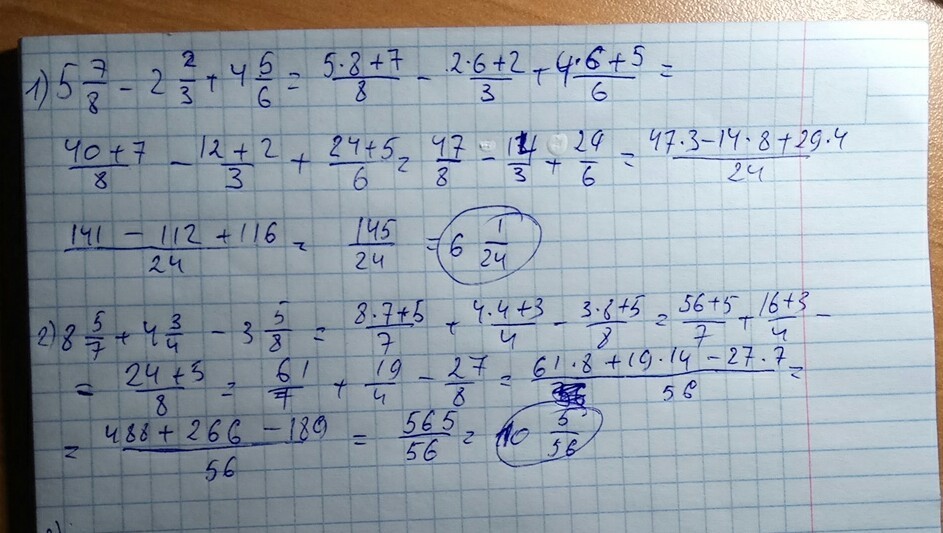 1) 5 7/8 - 2 2/3 + 4 5/6 = (5·8+7)/8 - (2·6+2)/3 + (4·6+5)/6 =
(40+7)/8 - (12+2)/3 + (24+5)/6 = 47/8 - 14/3 + 29/6 = (47·3-14·8+29·4)/24
(141 - 112 + 116)/24 = 145/24 = 6 1/24
2) 8 5/7 + 4 3/4 - 3 5/8 = (8·7+5)/7 + (4·4+3)/4 - (3·8+5)/8 = (56+5)/7 + (16+3)/4 -
= (24+3)/8 = 61/7 + 19/4 - 27/8 = (61·8+19·14-27·7)/56 =
= (488+266-189)/56 = 565/56 = 10 5/56